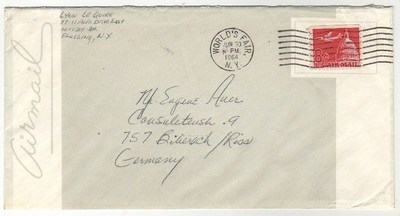 Lynn Le Guire
Flushing, N.Y.
Airmail
WORLD'S FAIR
JUN 30
PM
1964
N.Y.
8¢
AIR MAIL
Mr. Eugene Auer
Consuletensh. 9
757 Biberach/Riss
Germany